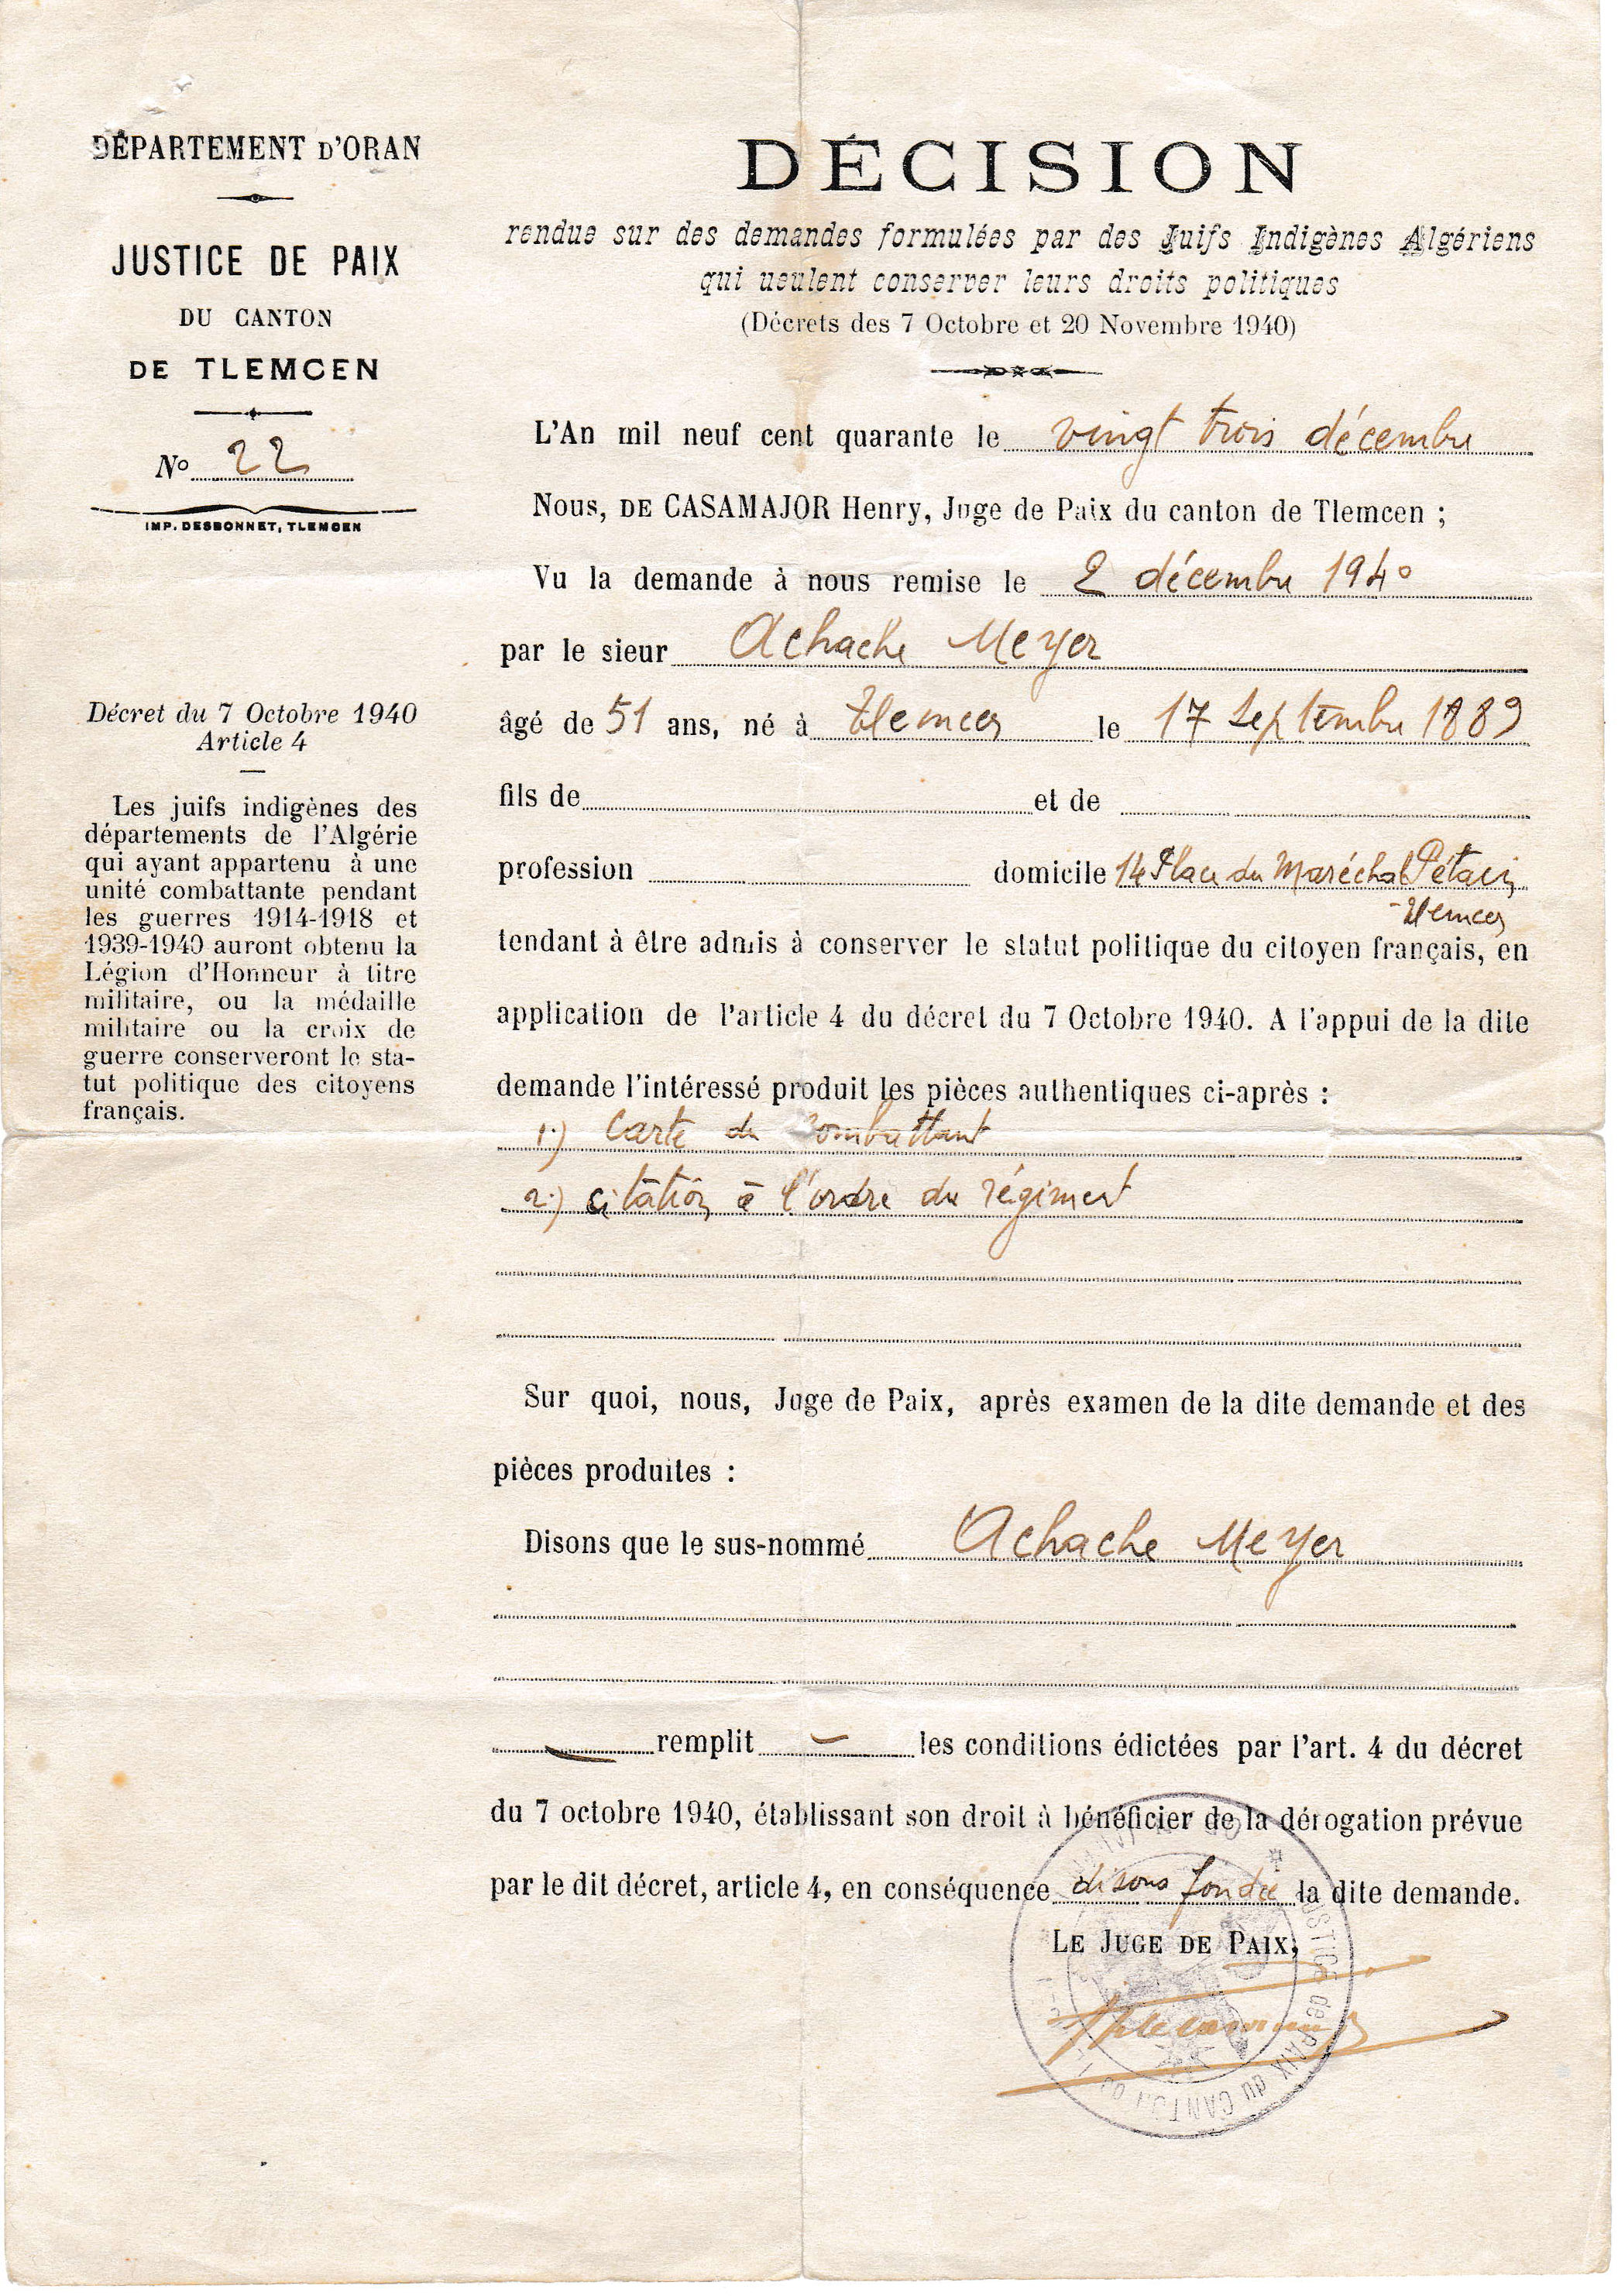 DÉPARTEMENT D'ORAN
JUSTICE DE PAIX
DU CANTON
DE TLEMCEN
No 22
IMP. DESBONNET, TLEMCEN
Décret du 7 Octobre 1940
Article 4
Les juifs indigènes des
départements de l'Algérie
qui ayant appartenu à une
unité combattante pendant
les guerres 1914-1918 et
1939-1940 auront obtenu la
Légion d'Honneur à titre
militaire, ou la médaille
militaire ou la croix de
guerre conserveront le sta-
tut politique des citoyens
français.
DÉCISION
rendue sur des demandes formulées par des Juifs Indigènes Algériens
qui veulent conserver leurs droits politiques
(Décrets des 7 Octobre et 20 Novembre 1940)
L'An mil neuf cent quarante le vingt trois décembre
Nous, DE CASAMAJOR Henry, Juge de Paix du canton de Tlemcen ;
Vu la demande à nous remise le 2 décembre 1940
par le sieur Achache Meyer
âgé de 51 ans, né à Tlemcen le 17 Septembre 1889
fils de et de
profession domicile 14 Place du Maréchal Pétain
Tlemcen
tendant à être admis à conserver le statut politique du citoyen français, en
application de l'article 4 du décret du 7 Octobre 1940. A l'appui de la dite
demande l'intéressé produit les pièces authentiques ci-après :
1) Carte du Combattant
2) citation à l'ordre du régiment
Sur quoi, nous, Juge de Paix, après examen de la dite demande et des
pièces produites :
Disons que le sus-nommé Achache Meyer
remplit les conditions édictées par l'art. 4 du décret
du 7 octobre 1940, établissant son droit à bénéficier de la dérogation prévue
par le dit décret, article 4, en conséquence disons fondée la dite demande.
LE JUGE DE PAIX,
JUSTICE de PAIX du CANTON de